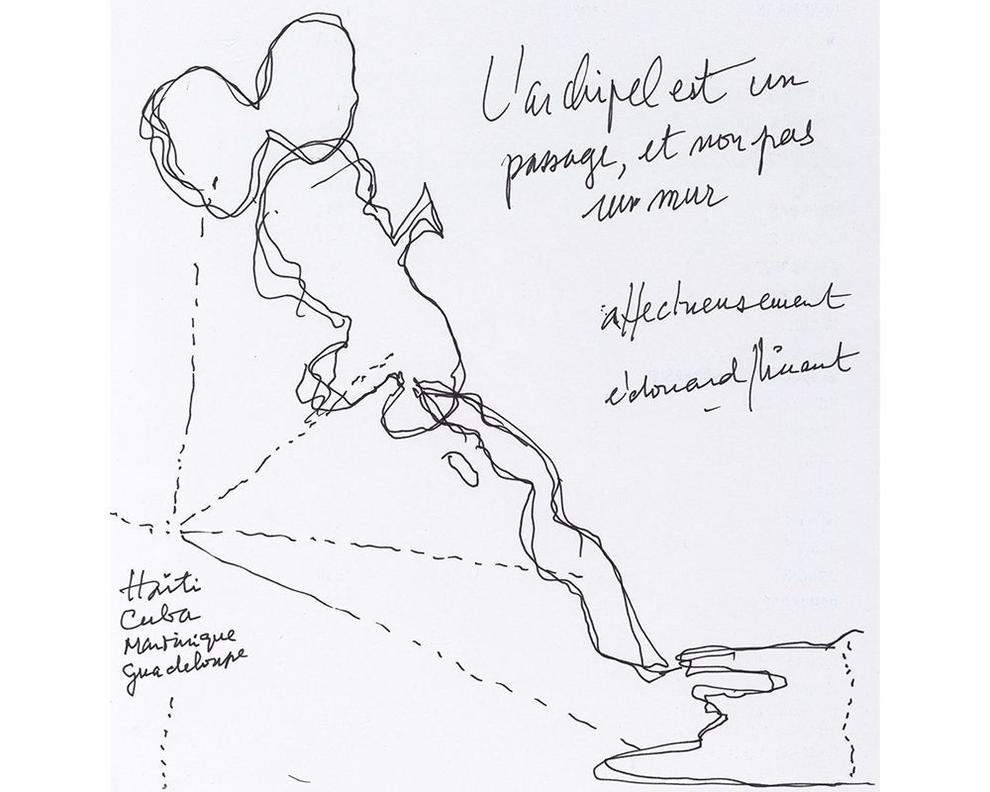 L'archipel est un
passage, et non pas
un mur
affectueusement
édouard glissant
Haïti
Cuba
Martinique
Guadeloupe